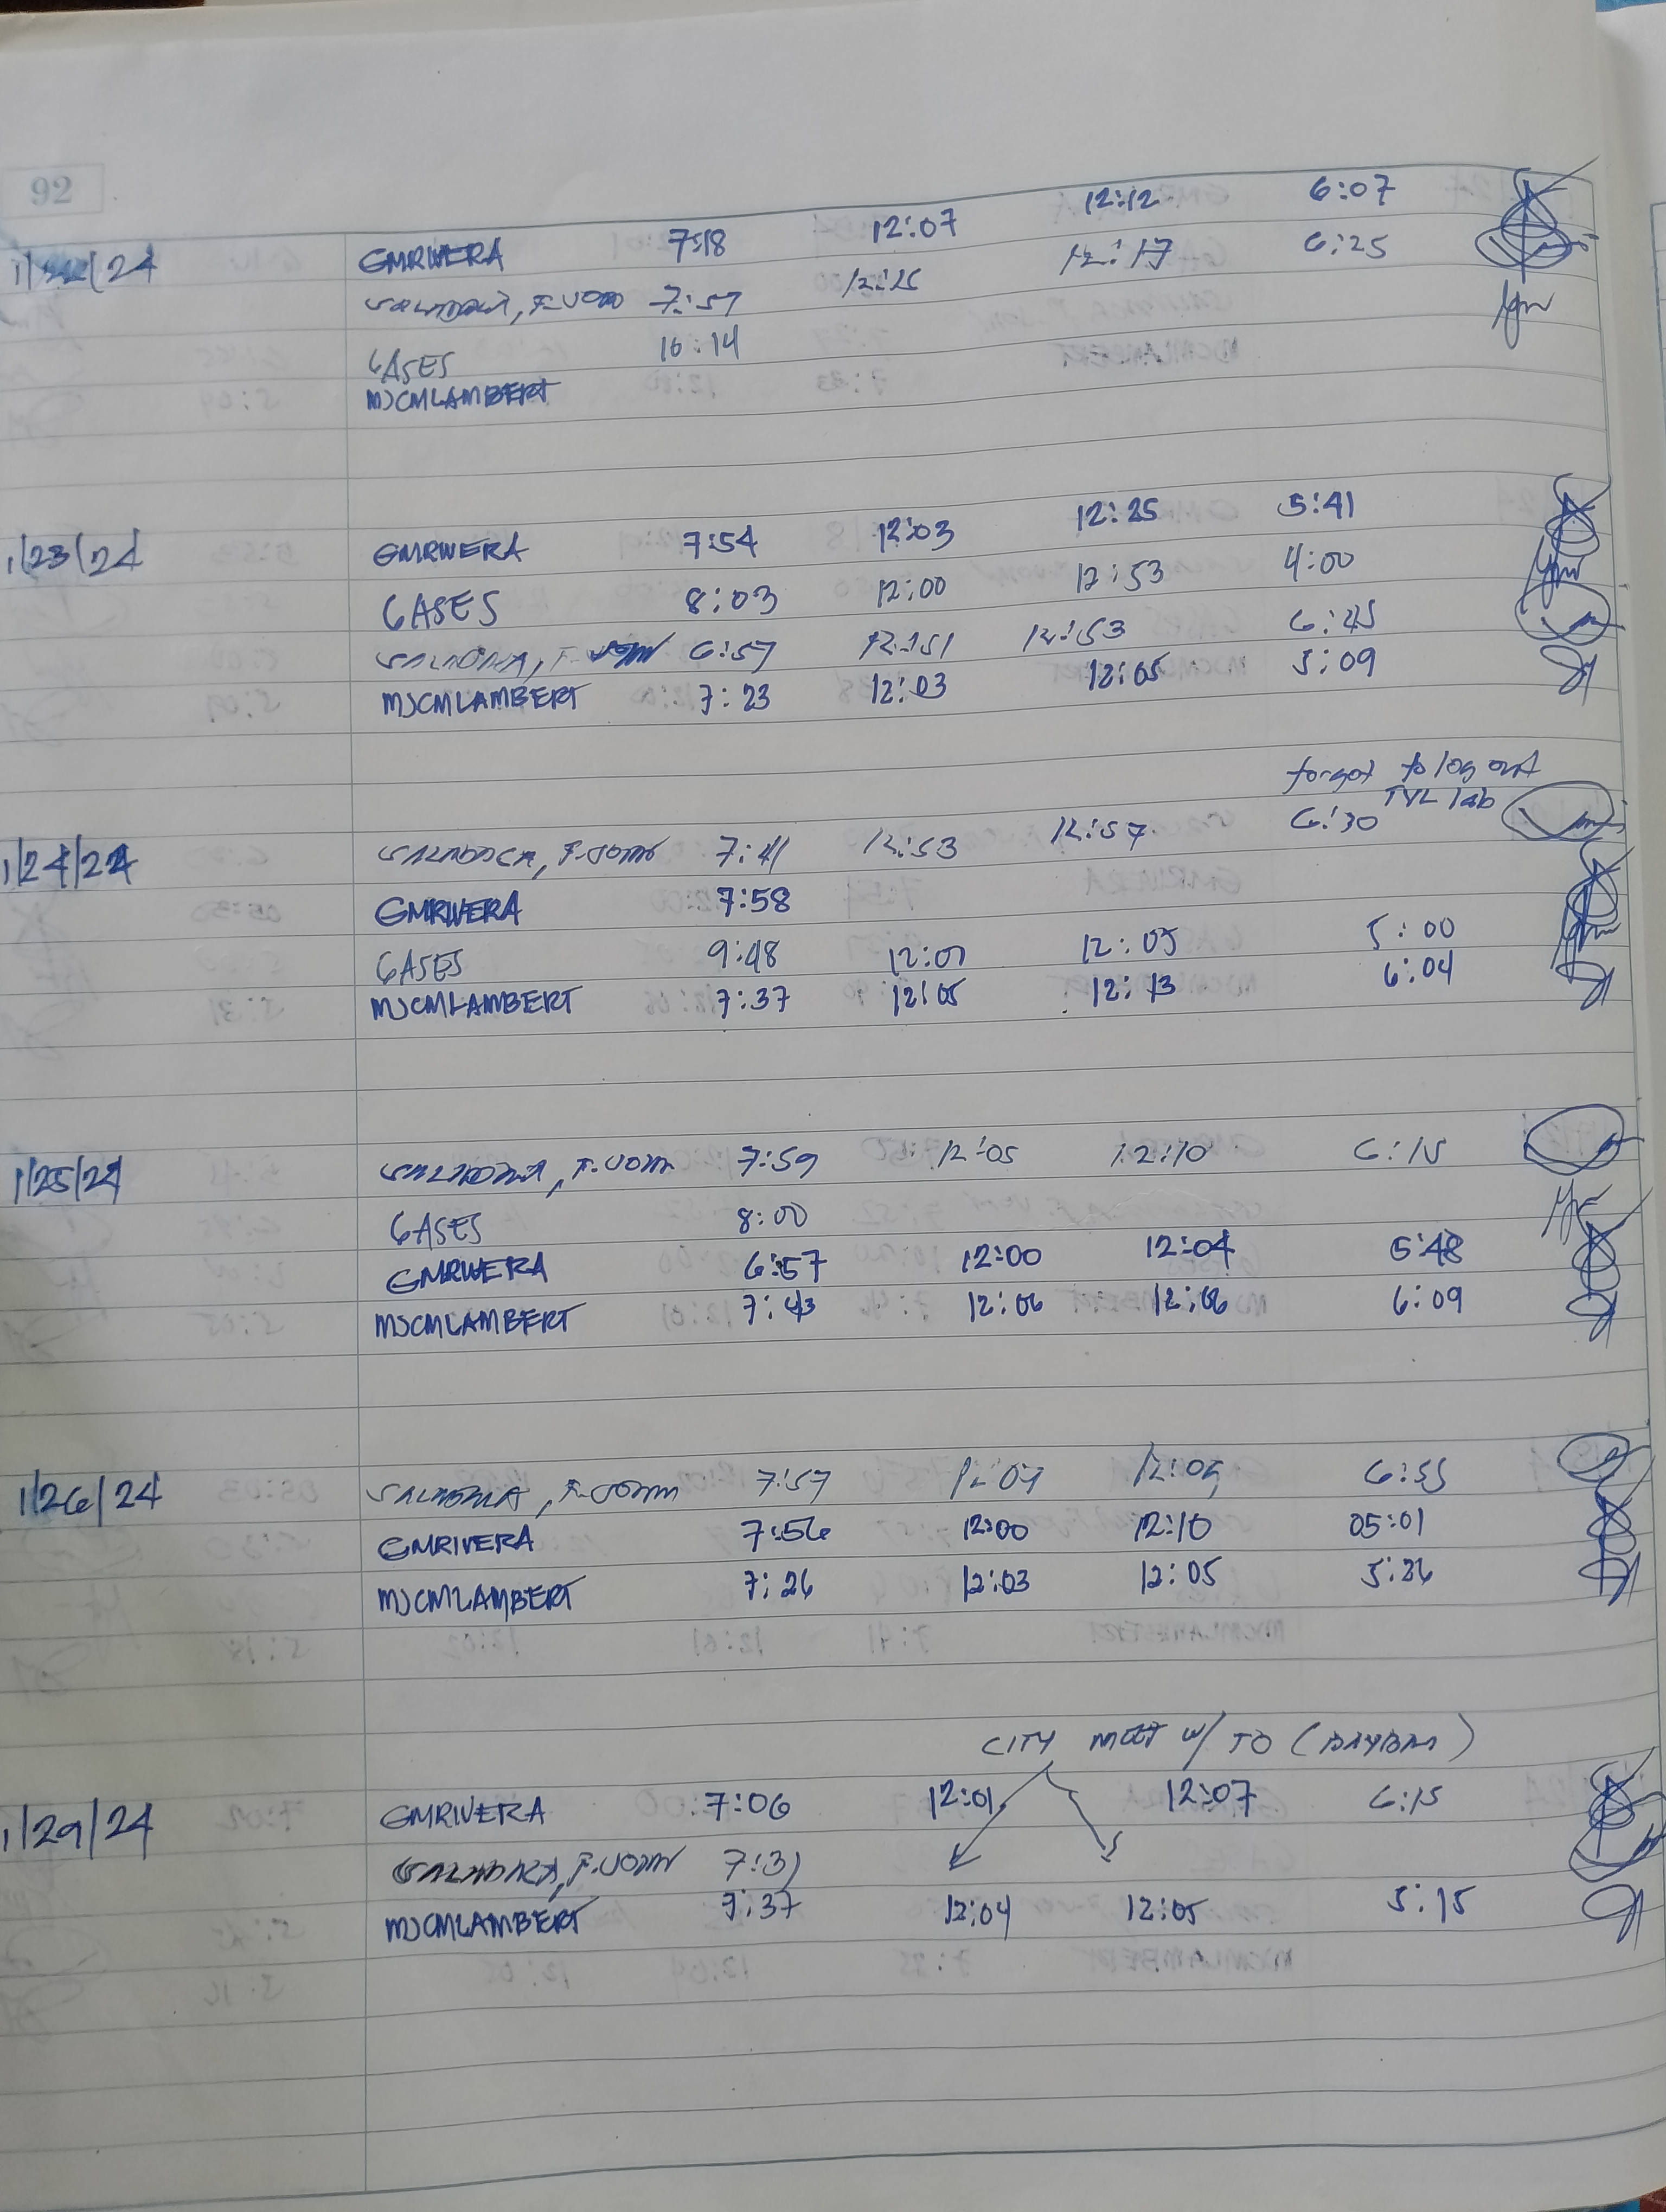 92
1/22/24 GMRIVERA 7:18 12:07 12:12 6:07
7:57 12:17 6:25
GASES 10:14
MJCMLAMBERT
1/23/24 GMRIVERA 7:54 12:03 12:25 5:41
GASES 8:03 12:00 12:53 4:00
6:57 12:51 12:53 6:45
MJCMLAMBERT 7:23 12:03 12:05 5:09
forgot to log out
TVL lab
1/24/24 7:41 12:53 12:57 6:30
GMRIVERA 7:58
GASES 9:48 12:01 12:05 5:00
MJCMLAMBERT 7:37 12:05 12:13 6:04
1/25/24 7:59 12:05 12:10 6:15
GASES 8:00
GMRIVERA 6:57 12:00 12:04 5:48
MJCMLAMBERT 7:43 12:06 12:08 6:09
1/26/24 7:57 12:04 6:55
GMRIVERA 7:56 12:00 12:10 05:01
MJCMLAMBERT 7:26 12:03 12:05 5:26
CITY MEET w/ TO (BAYBAY)
1/29/24 GMRIVERA 7:06 12:01 12:07 6:15
7:31
MJCMLAMBERT 7:37 12:04 12:05 5:15